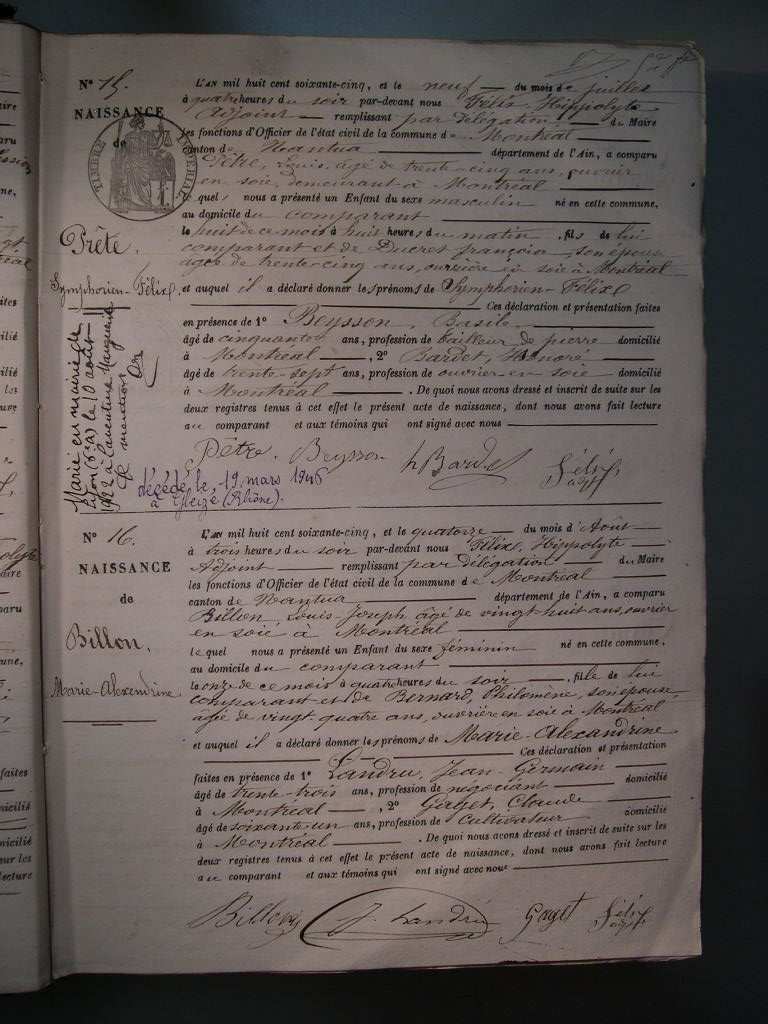 Nº 15.
NAISSANCE
de
TIMBRE IMPÉRIAL
Prête.
Symphorien-Félix
Marié en mairie de
Lyon (3e a) le 10 août
1922 à
mention
L'AN mil huit cent soixante-cinq, et le neuf du mois de juillet
à quatre heures du soir par-devant nous Félix, Hippolyte
Adjoint remplissant par délégation du Maire
les fonctions d'Officier de l'état civil de la commune de Montréal
canton de Nantua département de l'Ain, a comparu
Pêtre, Louis, âgé de trente-cinq ans, ouvrier
en soie, demeurant à Montréal
lequel nous a présenté un Enfant du sexe masculin né en cette commune,
au domicile du comparant
le huit de ce mois à huit heures du matin, fils de lui
comparant et de Ducret françoise, son épouse
âgée de trente-cinq ans, ouvrière en soie à Montréal
et auquel il a déclaré donner les prénoms de Symphorien-Félix
Ces déclaration et présentation faites
en présence de 1º Beysson, Basile
âgé de cinquante ans, profession de tailleur de pierre domicilié
à Montréal, 2º Bardet, Honoré
âgé de trente-sept ans, profession de ouvrier en soie domicilié
à Montréal. De quoi nous avons dressé et inscrit de suite sur les
deux registres tenus à cet effet le présent acte de naissance, dont nous avons fait lecture
au comparant et aux témoins qui ont signé avec nous
Pêtre Beysson h Bardet Félix
décédé le 19 mars 1946
à Gleizé (Rhône).
Nº 16.
NAISSANCE
de
Billon,
Marie-Alexendrine
L'AN mil huit cent soixante-cinq, et le quatorze du mois d'Août
à trois heures du soir par-devant nous Félix, Hippolyte
Adjoint remplissant par délégation du Maire
les fonctions d'Officier de l'état civil de la commune de Montréal
canton de Nantua département de l'Ain, a comparu
Billon, Louis Joseph âgé de vingt huit ans, ouvrier
en soie à Montréal
lequel nous a présenté un Enfant du sexe féminin né en cette commune,
au domicile du comparant
le onze de ce mois à quatre heures du soir, fille de lui
comparant et de Bernard, Philomène, son épouse,
âgée de vingt quatre ans, ouvrière en soie à Montréal
et auquel il a déclaré donner les prénoms de Marie-Alexandrine
Ces déclaration et présentation
faites en présence de 1º Landru, Jean-Germain
âgé de trente-trois ans, profession de négociant domicilié
à Montréal, 2º Gaget, Claude
âgé de soixante-un ans, profession de Cultivateur domicilié
à Montréal. De quoi nous avons dressé et inscrit de suite sur les
deux registres tenus à cet effet le présent acte de naissance, dont nous avons fait lecture
au comparant et aux témoins qui ont signé avec nous
Billon J. Landru Gaget Félix